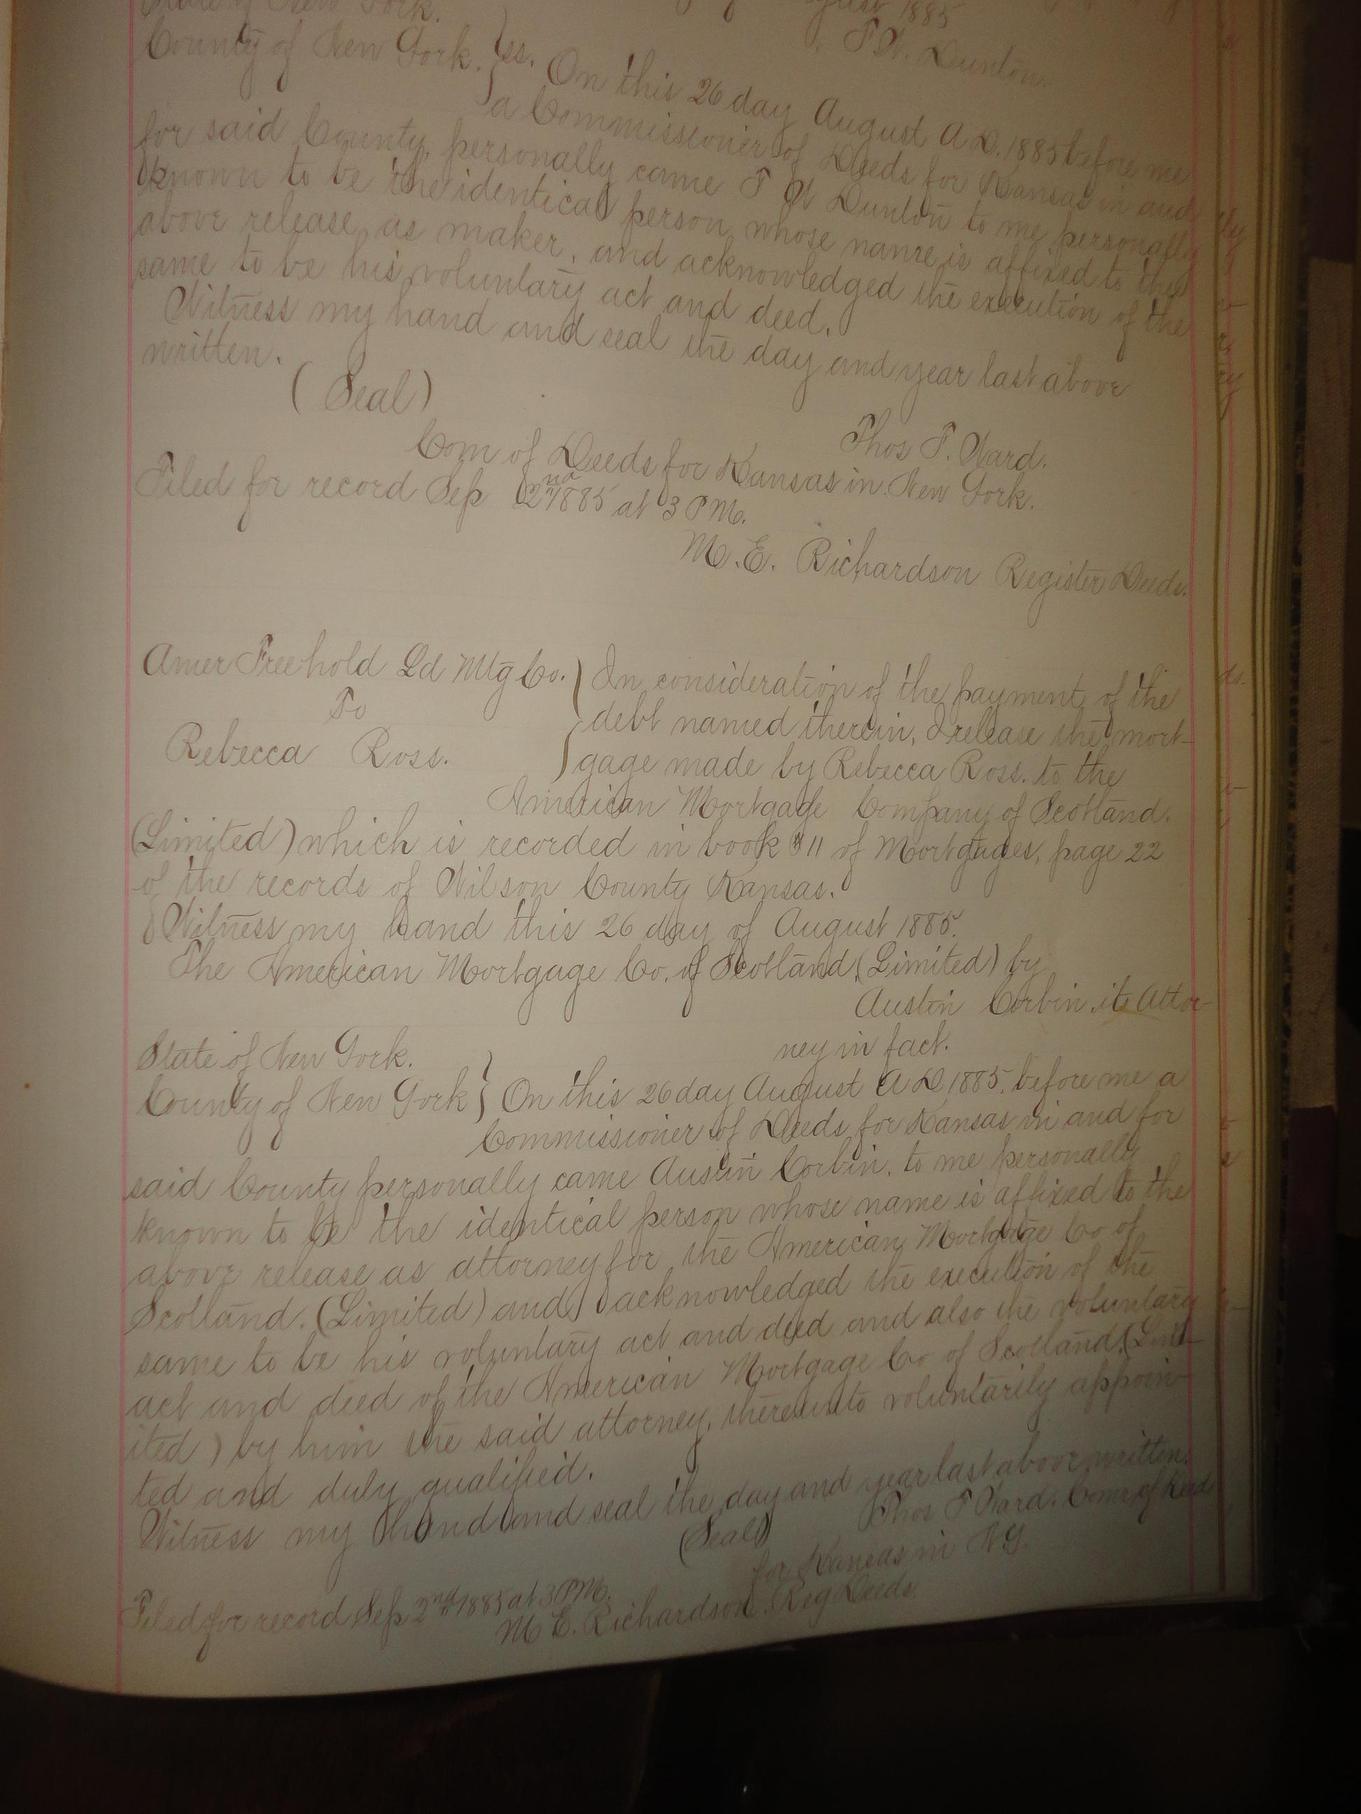 State of New York.
August 1885
F. W. Dunton.
County of New York. } ss. On this 26 day August A.D. 1885 before me
a Commissioner of Deeds for Kansas in and
for said County, personally came F W Dunton to me personally
known to be the identical person whose name is affixed to the
above release, as maker, and acknowledged the execution of the
same to be his voluntary act and deed.
Witness my hand and seal the day and year last above
written.
(Seal)
Thos F. Ward.
Com of Deeds for Kansas in New York.
Filed for record Sep 2nd 1885 at 3 PM.
M. E. Richardson Register Deeds.
Amer Freehold Ld Mtg Co. } In consideration of the payment of the
To debt named therein, I release the mort-
Rebecca Ross. } gage made by Rebecca Ross. to the
American Mortgage Company of Scotland.
(Limited) which is recorded in book 11 of Mortgages, page 22
of the records of Wilson County Kansas.
Witness my hand this 26 day of August 1885.
The American Mortgage Co. of Scotland, (Limited) by
Austin Corbin, its Attor-
ney in fact.
State of New York.
County of New York } On this 26 day August A D 1885, before me a
Commissioner of Deeds for Kansas in and for
said County personally came Austin Corbin, to me personally
known to be the identical person whose name is affixed to the
above release as attorney for the American Mortgage Co of
Scotland. (Limited) and acknowledged the execution of the
same to be his voluntary act and deed and also the voluntary
act and deed of the American Mortgage Co of Scotland, (Lim-
ited) by him the said attorney, thereunto voluntarily appoin-
ted and duly qualified.
Witness my hand and seal the day and year last above written.
(Seal) Thos F Ward. Comr of Deed
for Kansas in N.Y.
Filed for record Sep 2nd 1885 at 3 PM.
M E. Richardson. Reg Deeds.